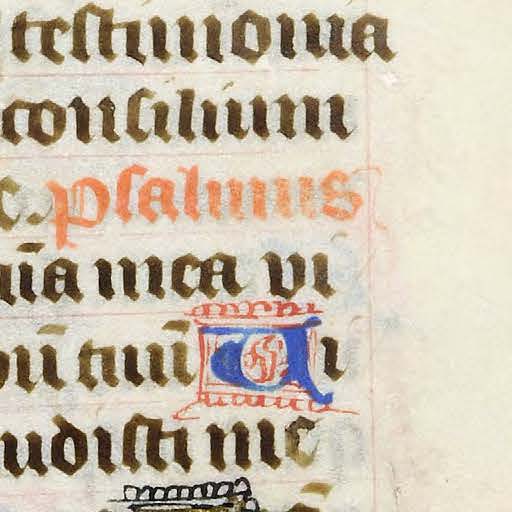 testimonia
consilium
c. psalmus
uīa mea vi
uū tuū Ui
udisti me